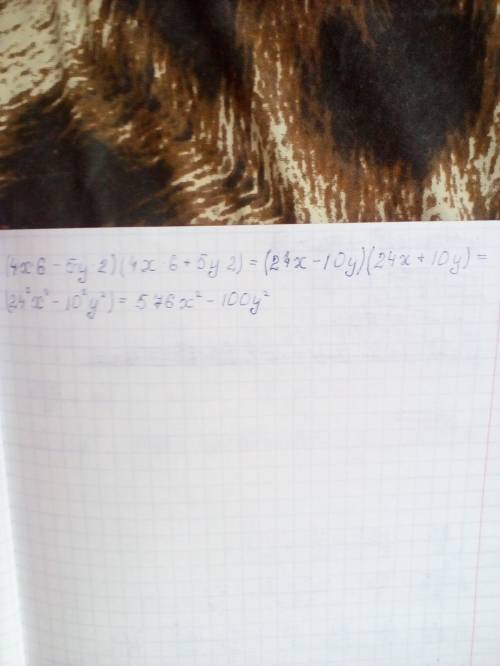 (4x6 - 5y 2)(4x 6 + 5y 2) = (24x - 10y)(24x + 10y) =
(24²x² - 10²y²) = 576x² - 100y²